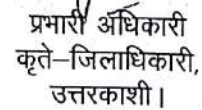 प्रभारी अधिकारी
कृते–जिलाधिकारी,
उत्तरकाशी।